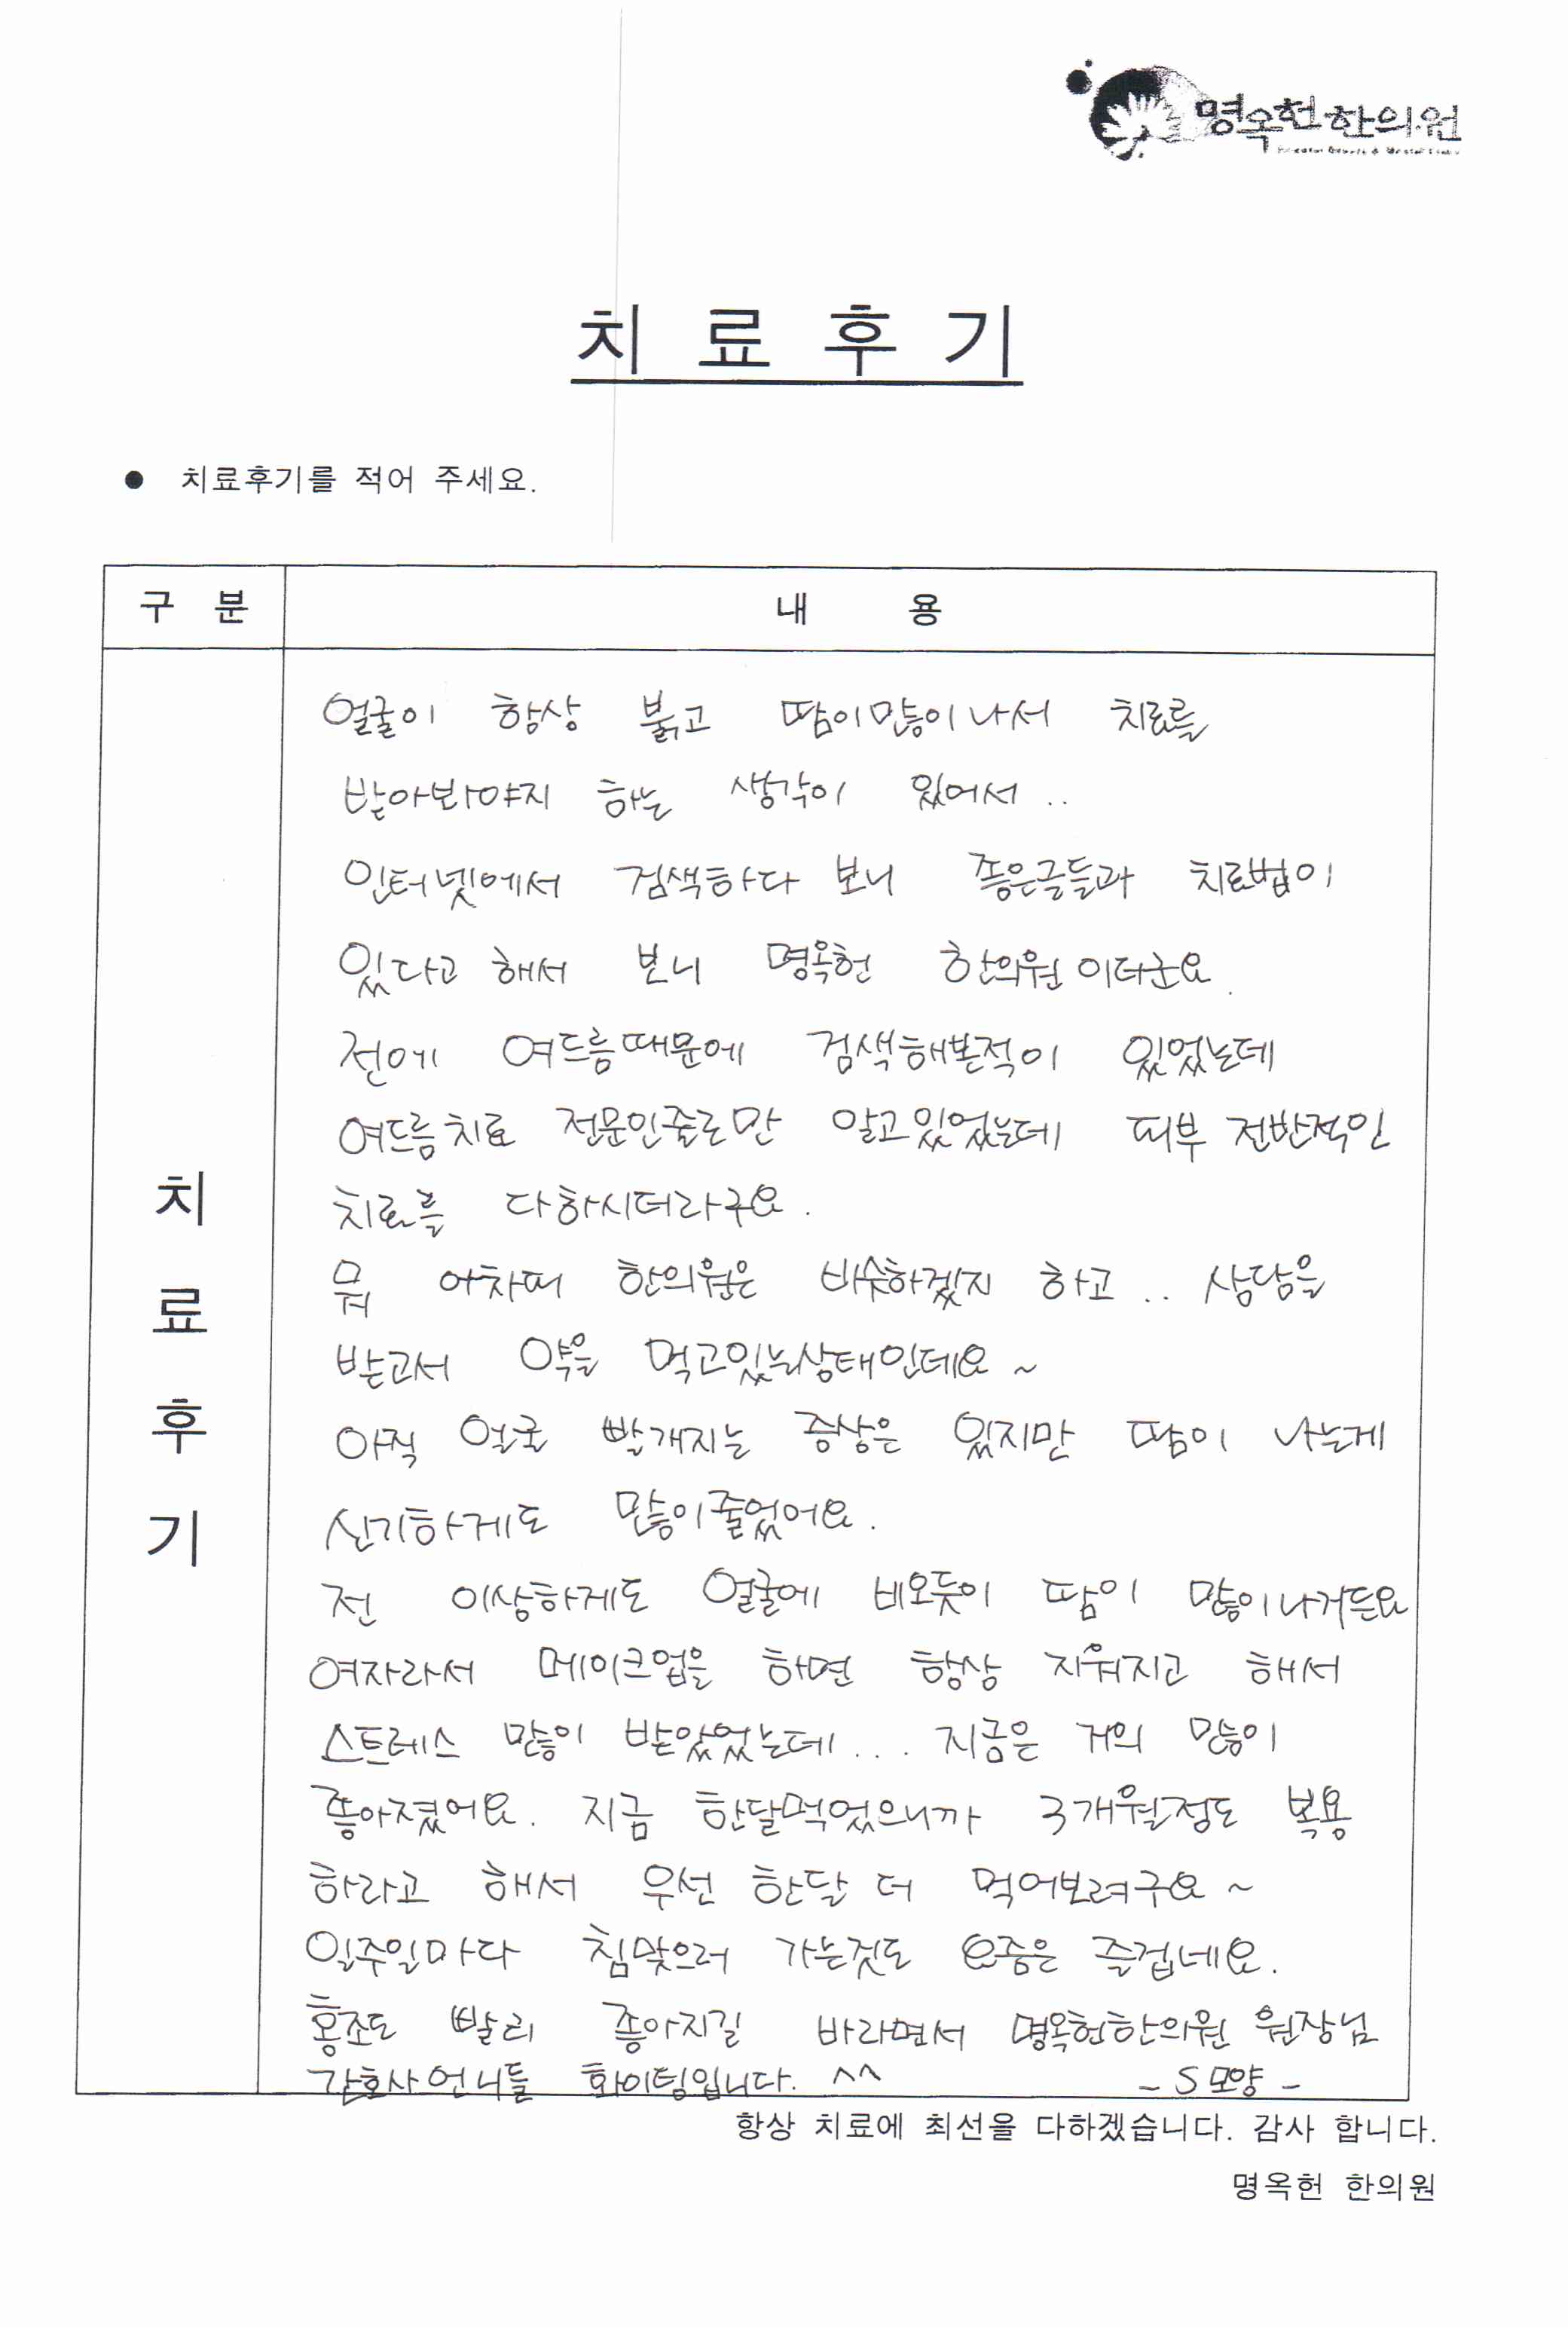 명옥헌한의원
치 료 후 기
● 치료후기를 적어 주세요.
구 분
내 용
치 료 후 기
얼굴이 항상 붉고 땀이많이나서 치료를
받아봐야지 하는 생각이 있어서..
인터넷에서 검색하다 보니 좋은글들과 치료법이
있다고 해서 보니 명옥헌 한의원이더군요.
전에 여드름때문에 검색해본적이 있었는데
여드름치료 전문인줄로만 알고있었는데 피부 전반적인
치료를 다하시더라구요.
뭐 어차피 한의원은 비슷하겠지 하고.. 상담을
받고서 약을 먹고있는상태인데요~
아직 얼굴 빨개지는 증상은 있지만 땀이 나는게
신기하게도 많이줄었어요.
전 이상하게도 얼굴에 비오듯이 땀이 많이나거든요
여자라서 메이크업을 하면 항상 지워지고 해서
스트레스 많이 받았었는데... 지금은 거의 많이
좋아졌어요. 지금 한달먹었으니까 3개월정도 복용
하라고 해서 우선 한달 더 먹어보려구요~
일주일마다 침맞으러 가는것도 요즘은 즐겁네요.
홍조도 빨리 좋아지길 바라면서 명옥헌한의원 원장님
간호사언니들 화이팅입니다. ^^ - S모양 -
항상 치료에 최선을 다하겠습니다. 감사 합니다.
명옥헌 한의원